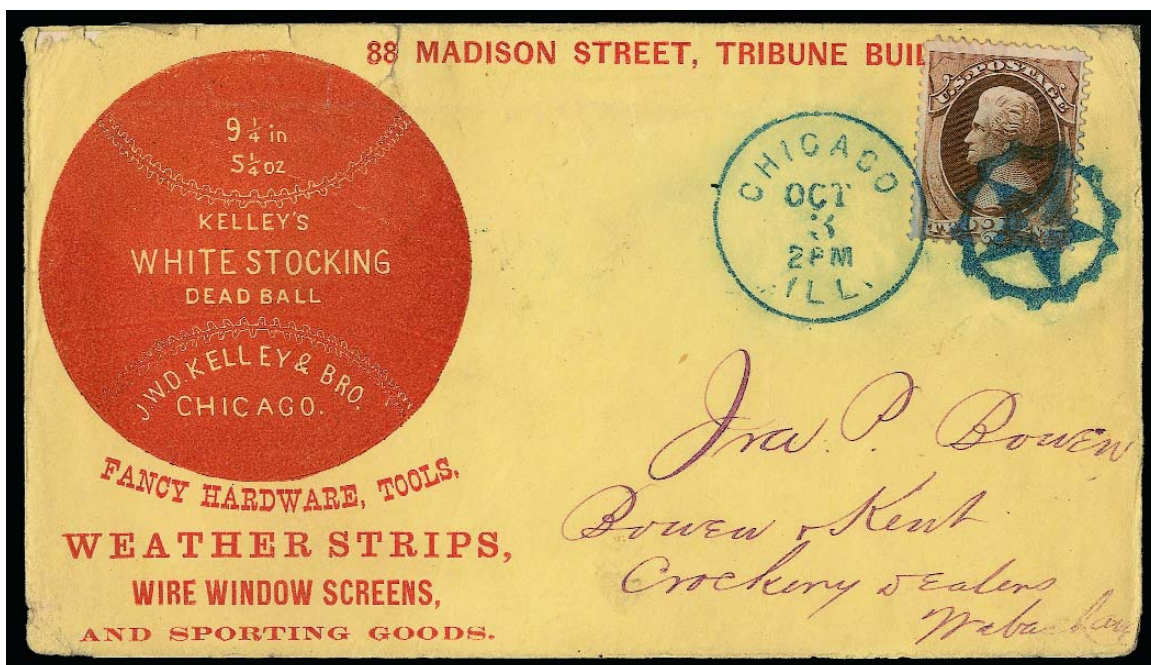 88 MADISON STREET, TRIBUNE BUIL
9 1/4 in
5 1/4 oz
KELLEY'S
WHITE STOCKING
DEAD BALL
J.W.D. KELLEY & BRO.
CHICAGO.
FANCY HARDWARE, TOOLS,
WEATHER STRIPS,
WIRE WINDOW SCREENS,
AND SPORTING GOODS.
CHICAGO
OCT
3
2 PM
ILL.
U.S. POSTAGE
Ira P. Bowen
Bowen & Kent
Crockery Dealers